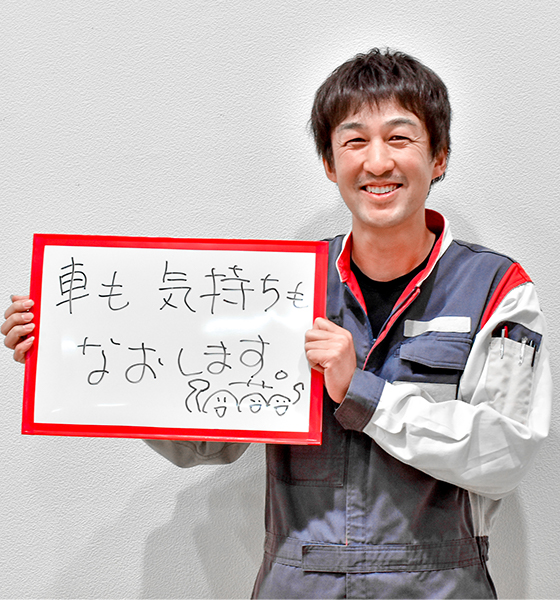 車も 気持ちも
なおします。